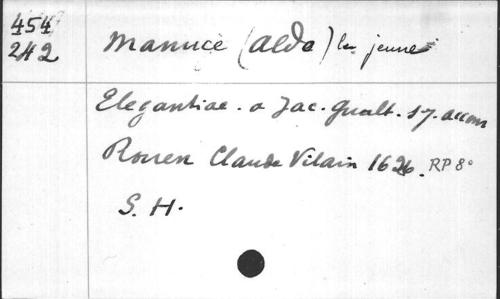 454
242
Manuce (Aldo) le jeune
Elegantiae. a Jac. Gualt. s.j. accom
Rouen Claude Vilain 1626. RP 8°
S. H.